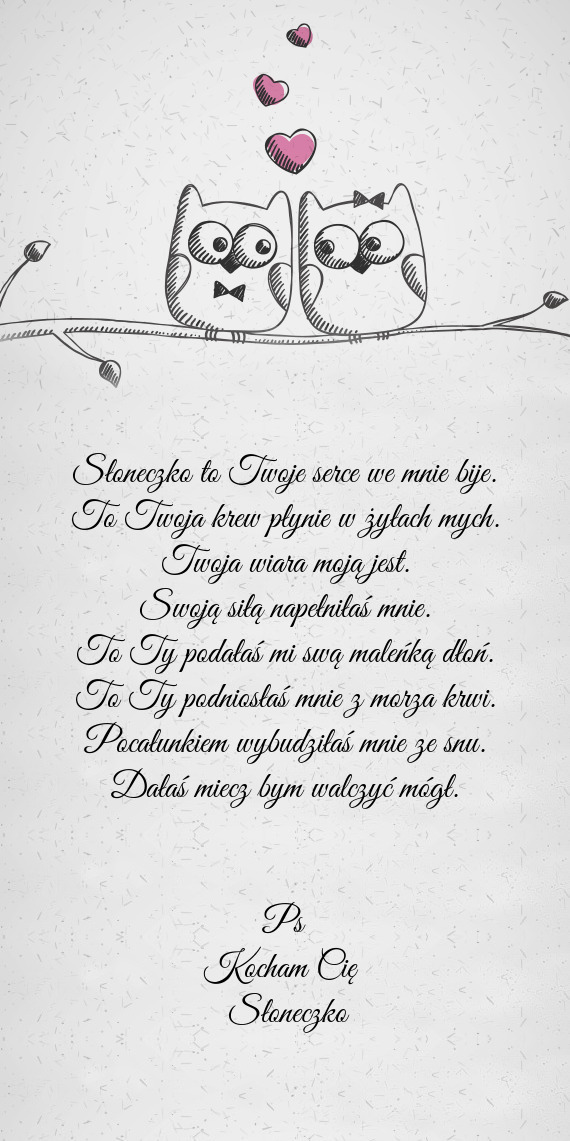 Słoneczko to Twoje serce we mnie bije.
To Twoja krew płynie w żyłach mych.
Twoja wiara moją jest.
Swoją siłą napełniłaś mnie.
To Ty podałaś mi swą maleńką dłoń.
To Ty podniosłaś mnie z morza krwi.
Pocałunkiem wybudziłaś mnie ze snu.
Dałaś miecz bym walczyć mógł.
Ps
Kocham Cię
Słoneczko